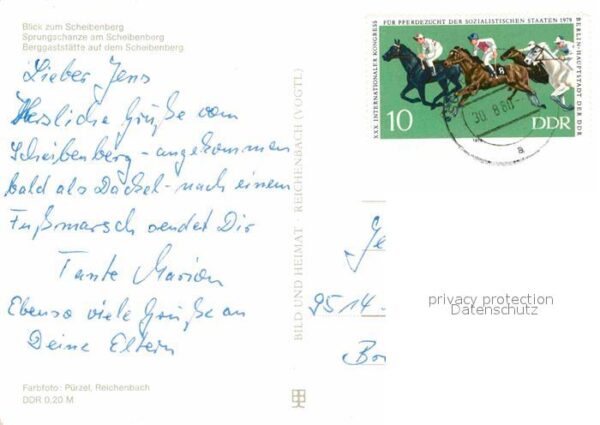 Blick zum Scheibenberg
Sprungschanze am Scheibenberg
Berggaststätte auf dem Scheibenberg
Lieber Jens
Herzliche Grüße vom
Scheibenberg - angekommen
bald als Dackel - nach einem
Fußmarsch sendet Dir
Tante Marion
Ebenso viele Grüße an
Deine Eltern
Farbfoto: Pürzel, Reichenbach
DDR 0,20 M
BILD UND HEIMAT · REICHENBACH (VOGTL)
XXX. INTERNATIONALER KONGRESS FÜR PFERDEZUCHT DER SOZIALISTISCHEN STAATEN 1979 BERLIN-HAUPTSTADT DER DDR
8
10
DDR
30 8 80
a
Je
9514-
Bo
privacy protection
Datenschutz